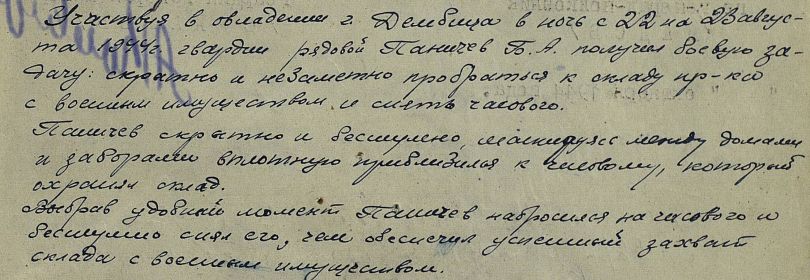 Участвуя в овладении г. Дембица в ночь с 22 на 23 авгус-
та 1944г. гвардии рядовой Паничев Б.А. получил боевую за-
дачу: скрытно и незаметно пробраться к складу пр-ка
с военным имуществом и снять часового.
Паничев скрытно и бесшумно, маскируясь между домами
и заборами вплотную приблизился к часовому, который
охранял склад.
Выбрав удобный момент Паничев набросился на часового и
бесшумно снял его, чем обеспечил успешный захват
склада с военным имуществом.